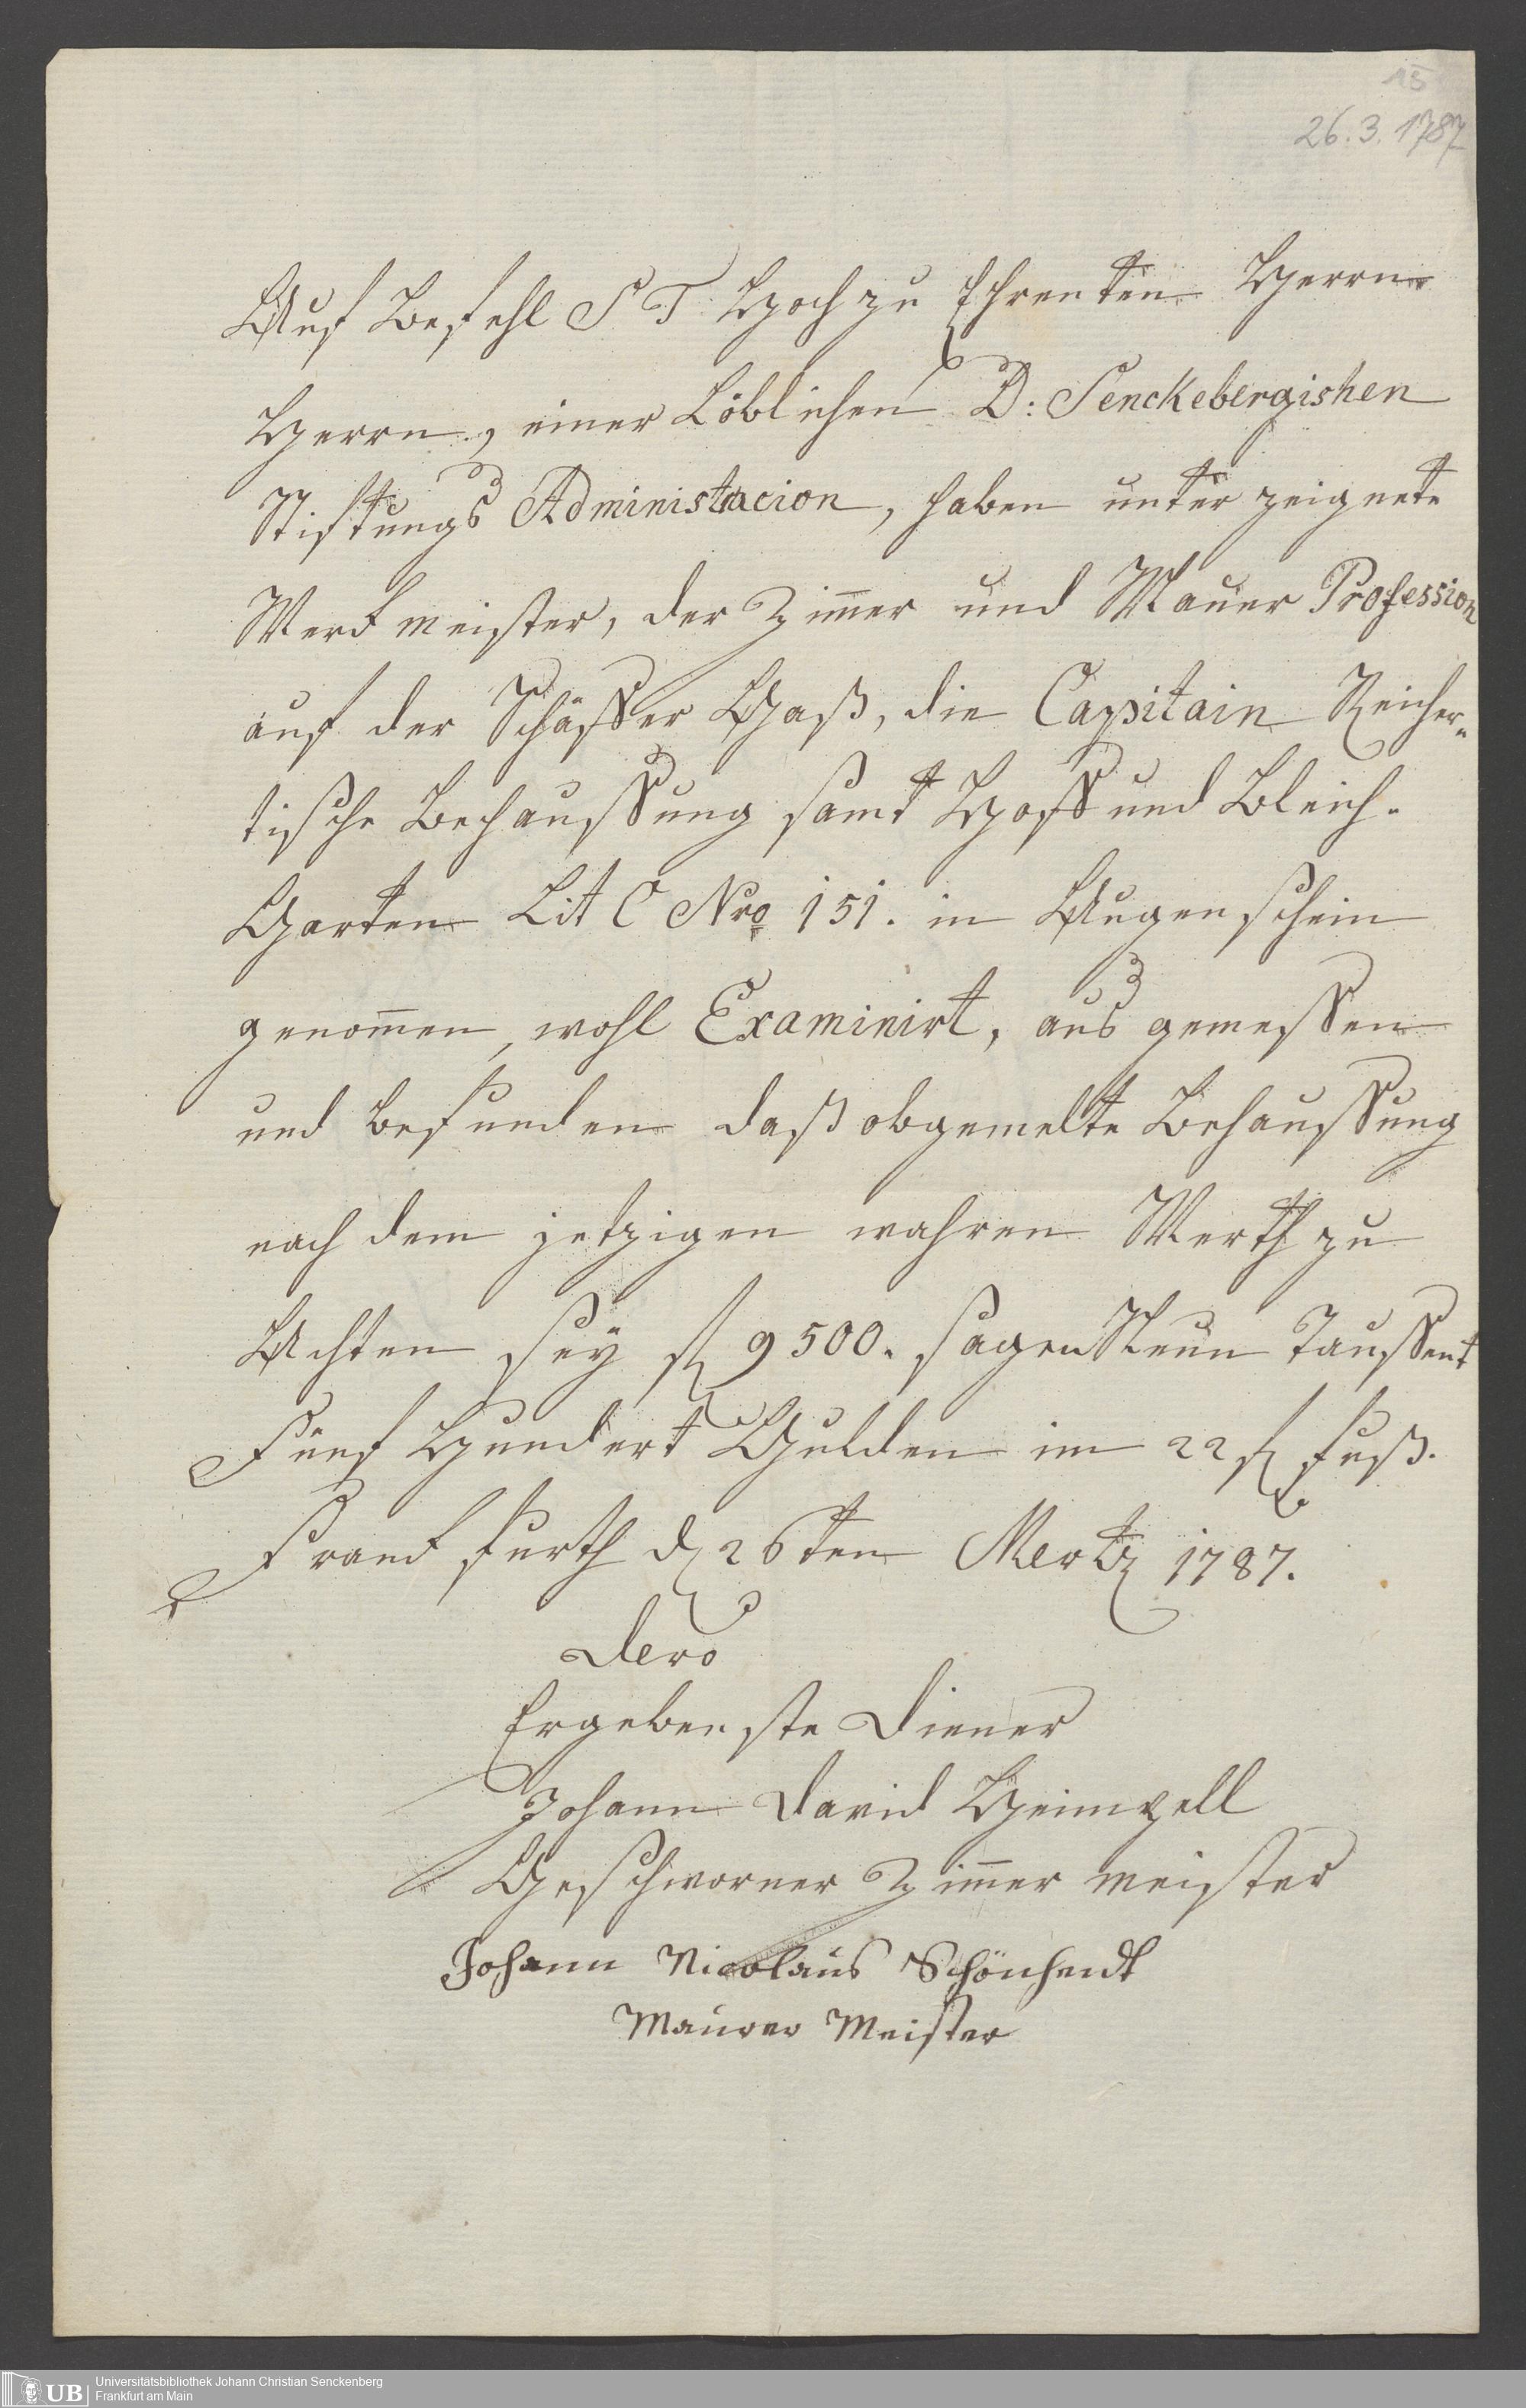 15
26.3.1787
Auf Befehl S T Hoch zu Ehrenten Herrn
Herrn, einer Löblichen D: Senckebergishen
Stiftungs Administracion, haben unter zeignete
Werck meister, der Zim̅er und Mauer Profession
auf der Schäffer Gaß, die Capitain Reicher„
tische Behaussung samt Hoff und Bleich-
Garten Lit C Nro 151. in Augen schein
genom̅en, wohl Examinirt, aus gemessen
und befunden daß obgemelte Behaussung
nach dem jetzigen wahren Werth zu
Achten sey fl 9500. sagen Neun Taussent
Fünf Hundert Gulden im 22 fl fuß.
Franckfurth d 26ten Mertz 1787.
Dero
Ergebenste Diener
Johann David Heimpell
Geschworner Zim̅er meister
Johann Nicolaus Schönheidt
Maurer Meister
UB Universitätsbibliothek Johann Christian Senckenberg
Frankfurt am Main